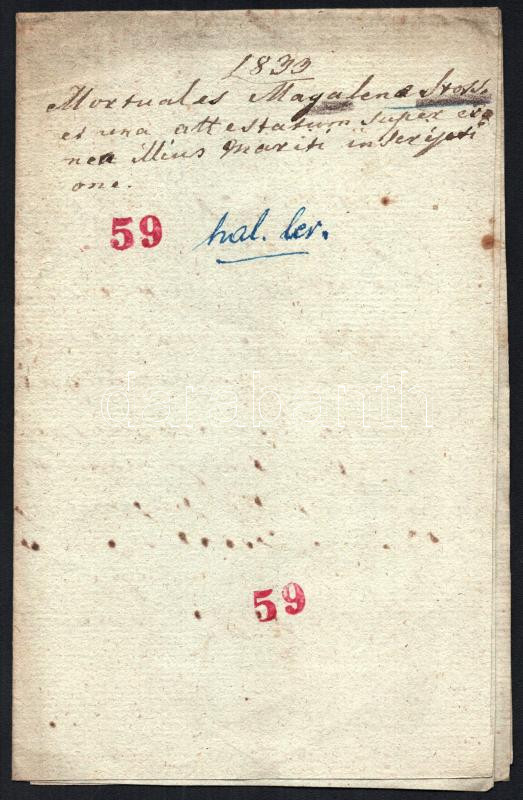 1833
Mortuales Magalenæ Stoss.
et una attestatum super ero
nea illius mariti inscripti
one.
59 hal. lev.
darabanth
59